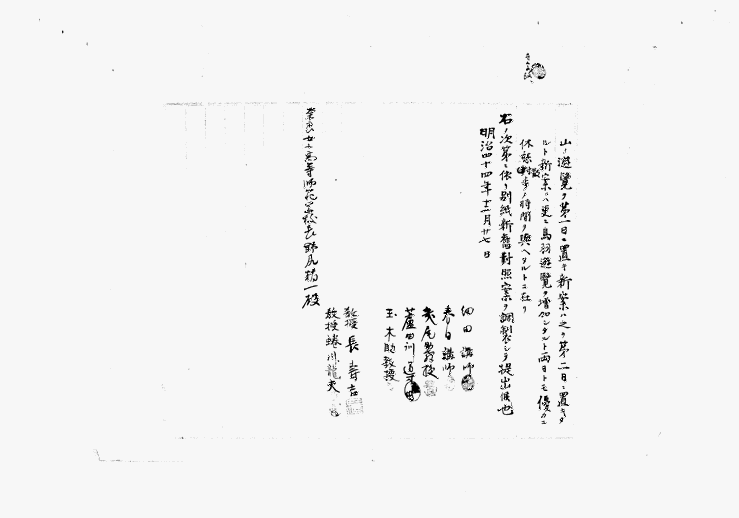 山ノ遊覧ヲ第一日ニ置キ新案ハ之ヲ第二日ニ置キタ
ルト新案ハ更ニ鳥羽遊覧ヲ増加シタルト両日トモ優カニ
休憩散歩ノ時間ヲ與ヘタルトニ在リ
右ノ次第ニ依リ別紙新舊對照案ヲ調製シテ提出候也
明治四十四年十二月廿七日
細田講師
春日講師
矢尾助教授
蘆田訓導
玉木助教授
教授長壽吉
教授蜷川龍夫
奈良女子高等師範学校長野尻精一殿